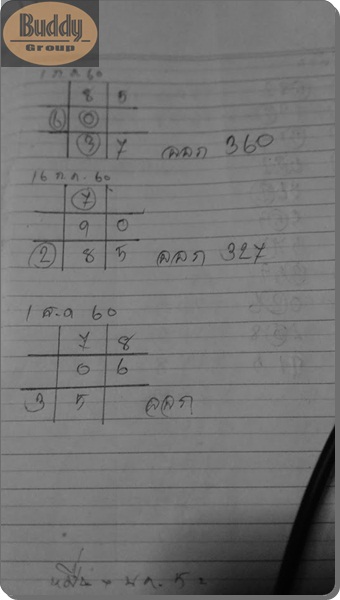 Buddy
Group
1 ก.ค. 60
8 5
6 0
3 7 ออก 360
16 ก.ค. 60
7
9 0
2 8 5 ออก 327
1 ส.ค 60
7 8
0 6
3 5 ออก